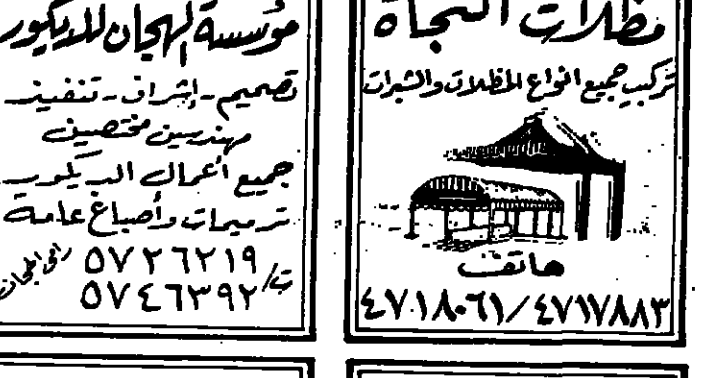 مظلات النجاة
تركيب جميع انواع المظلات والشبرات
هاتف
٤٧١٨٠٦١/٤٧١٧٨٨٣
مؤسسة الهجان للديكور
تصميم - إشراف - تنفيذ
مهندسين مختصين
جميع أعمال الديكور
ترميمات وأصباغ عامة
ت/ ٥٧٢٦٢١٩
٥٧٤٦٣٩٢